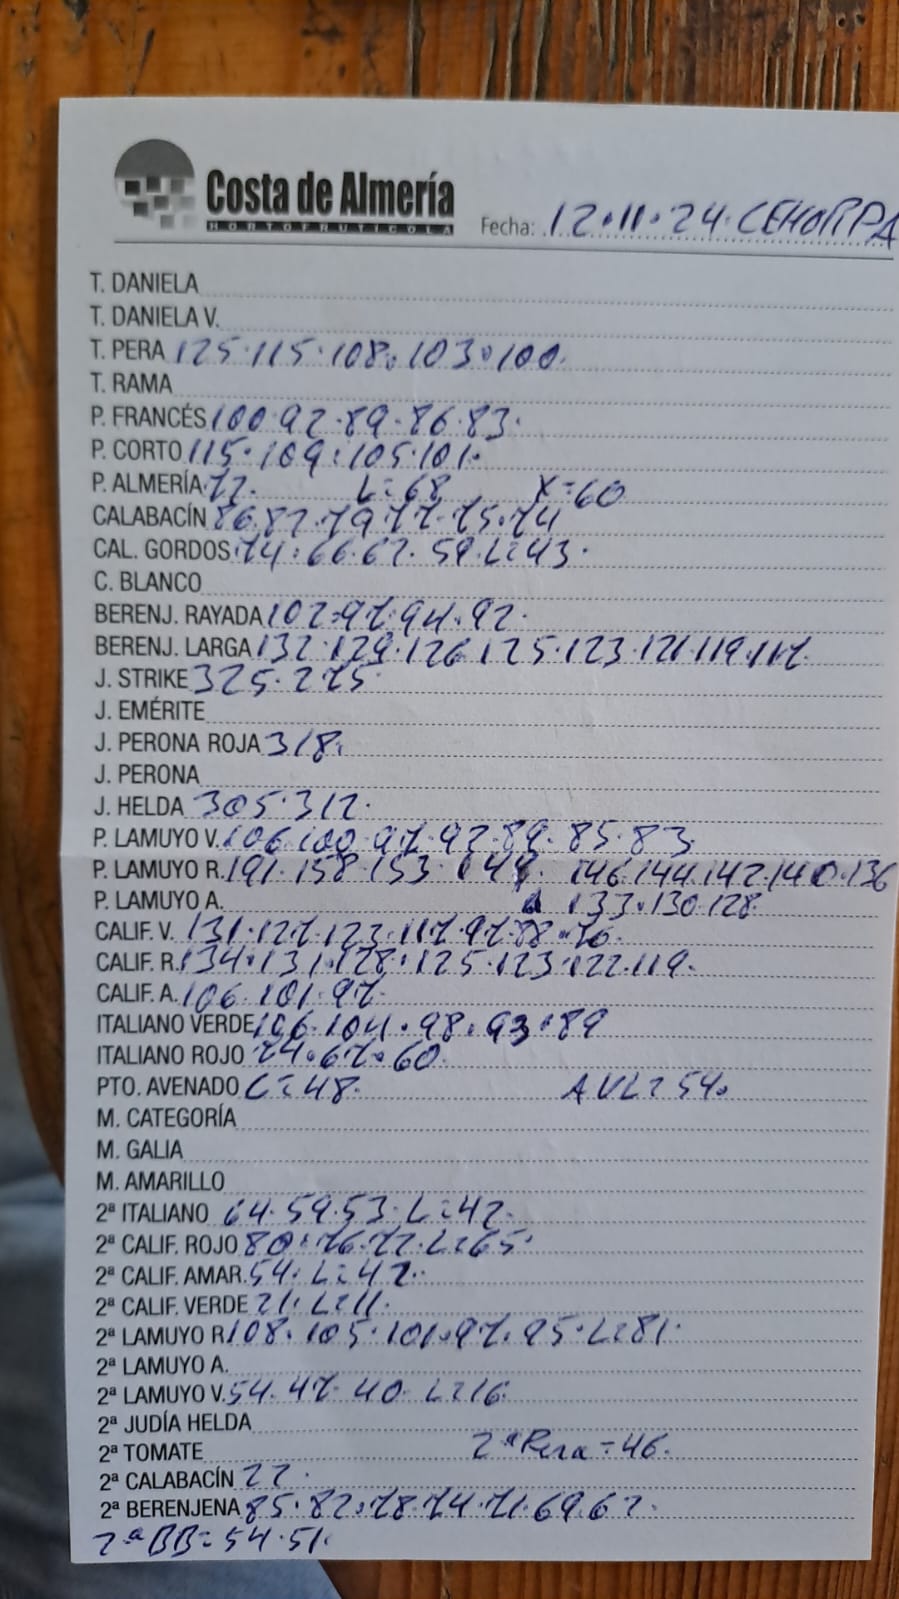 Costa de Almería
HORTOFRUTICOLA
Fecha: 12.11.24. CEHORPA
T. DANIELA
T. DANIELA V.
T. PERA 125.115.108.103.100.
T. RAMA
P. FRANCÉS 100.92.89.86.83.
P. CORTO 115.109.105.101.
P. ALMERÍA 72. L=68 X=60
CALABACÍN 86.82.79.77.75.74
CAL. GORDOS 74.66.62.59.L=43.
C. BLANCO
BERENJ. RAYADA 102.97.94.92.
BERENJ. LARGA 132.129.126.125.123.121.119.117.
J. STRIKE 325.275
J. EMÉRITE
J. PERONA ROJA 318.
J. PERONA
J. HELDA 305.312.
P. LAMUYO V. 106.100.97.92.89.85.83
P. LAMUYO R. 191.158.153.149. 146.144.142.140.136
P. LAMUYO A. 133.130.128
CALIF. V. 131.127.123.117.97.88.76.
CALIF. R. 134.131.128.125.123.122.119.
CALIF. A. 106.101.97.
ITALIANO VERDE 106.104.98.93.89
ITALIANO ROJO 74.67.60.
PTO. AVENADO L=48. AVL=54.
M. CATEGORÍA
M. GALIA
M. AMARILLO
2ª ITALIANO 64.59.53.L=42.
2ª CALIF. ROJO 80.76.72.L=65.
2ª CALIF. AMAR. 54.L=42.
2ª CALIF. VERDE 21.L=11.
2ª LAMUYO R. 108.105.101.97.95.L=81.
2ª LAMUYO A.
2ª LAMUYO V. 54.47.40.L=16.
2ª JUDÍA HELDA
2ª TOMATE 2ª Pera=46.
2ª CALABACÍN 22.
2ª BERENJENA 85.82.78.74.71.69.62.
2ª BB=54.51.